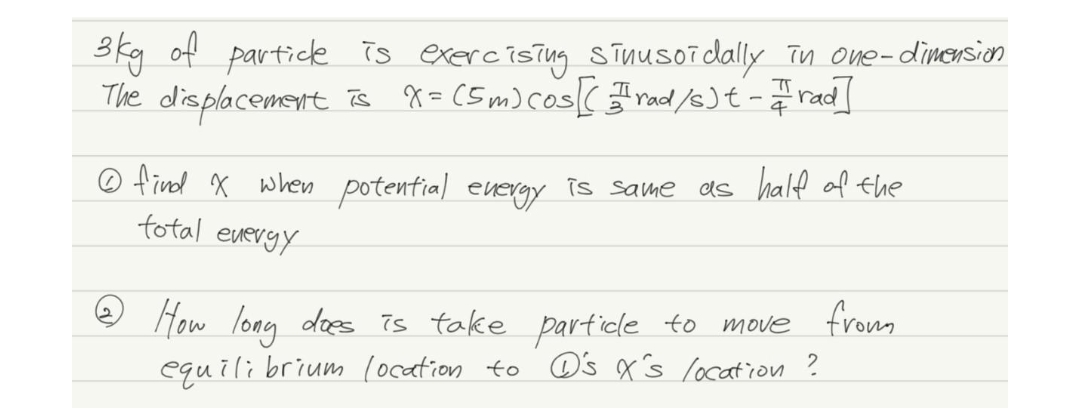 3kg of particle is exercising sinusoidally in one-dimension
The displacement is x = (5m)cos[(π/3 rad/s)t - π/4 rad]
① find x when potential energy is same as half of the
total energy
② How long does is take particle to move from
equilibrium location to ①'s x's location ?